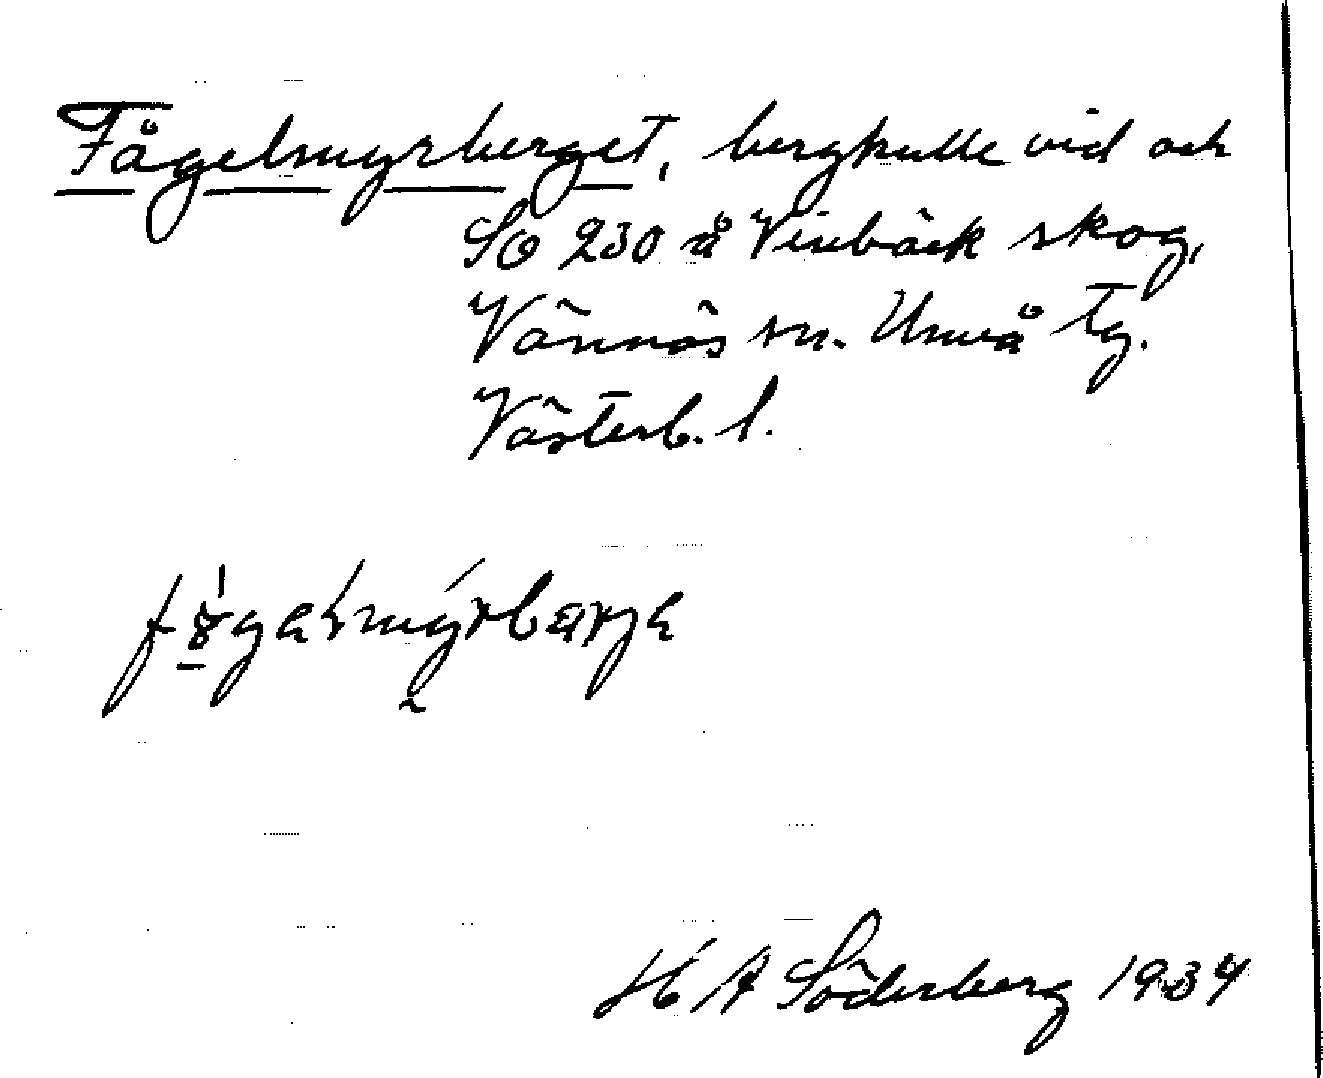 Fågelmyrberget, bergkulle vid och
SO 230 å Vinbäck skog,
Vännäs sn. Umeå tg.
Västerb. l.
H A Söderberg 1934